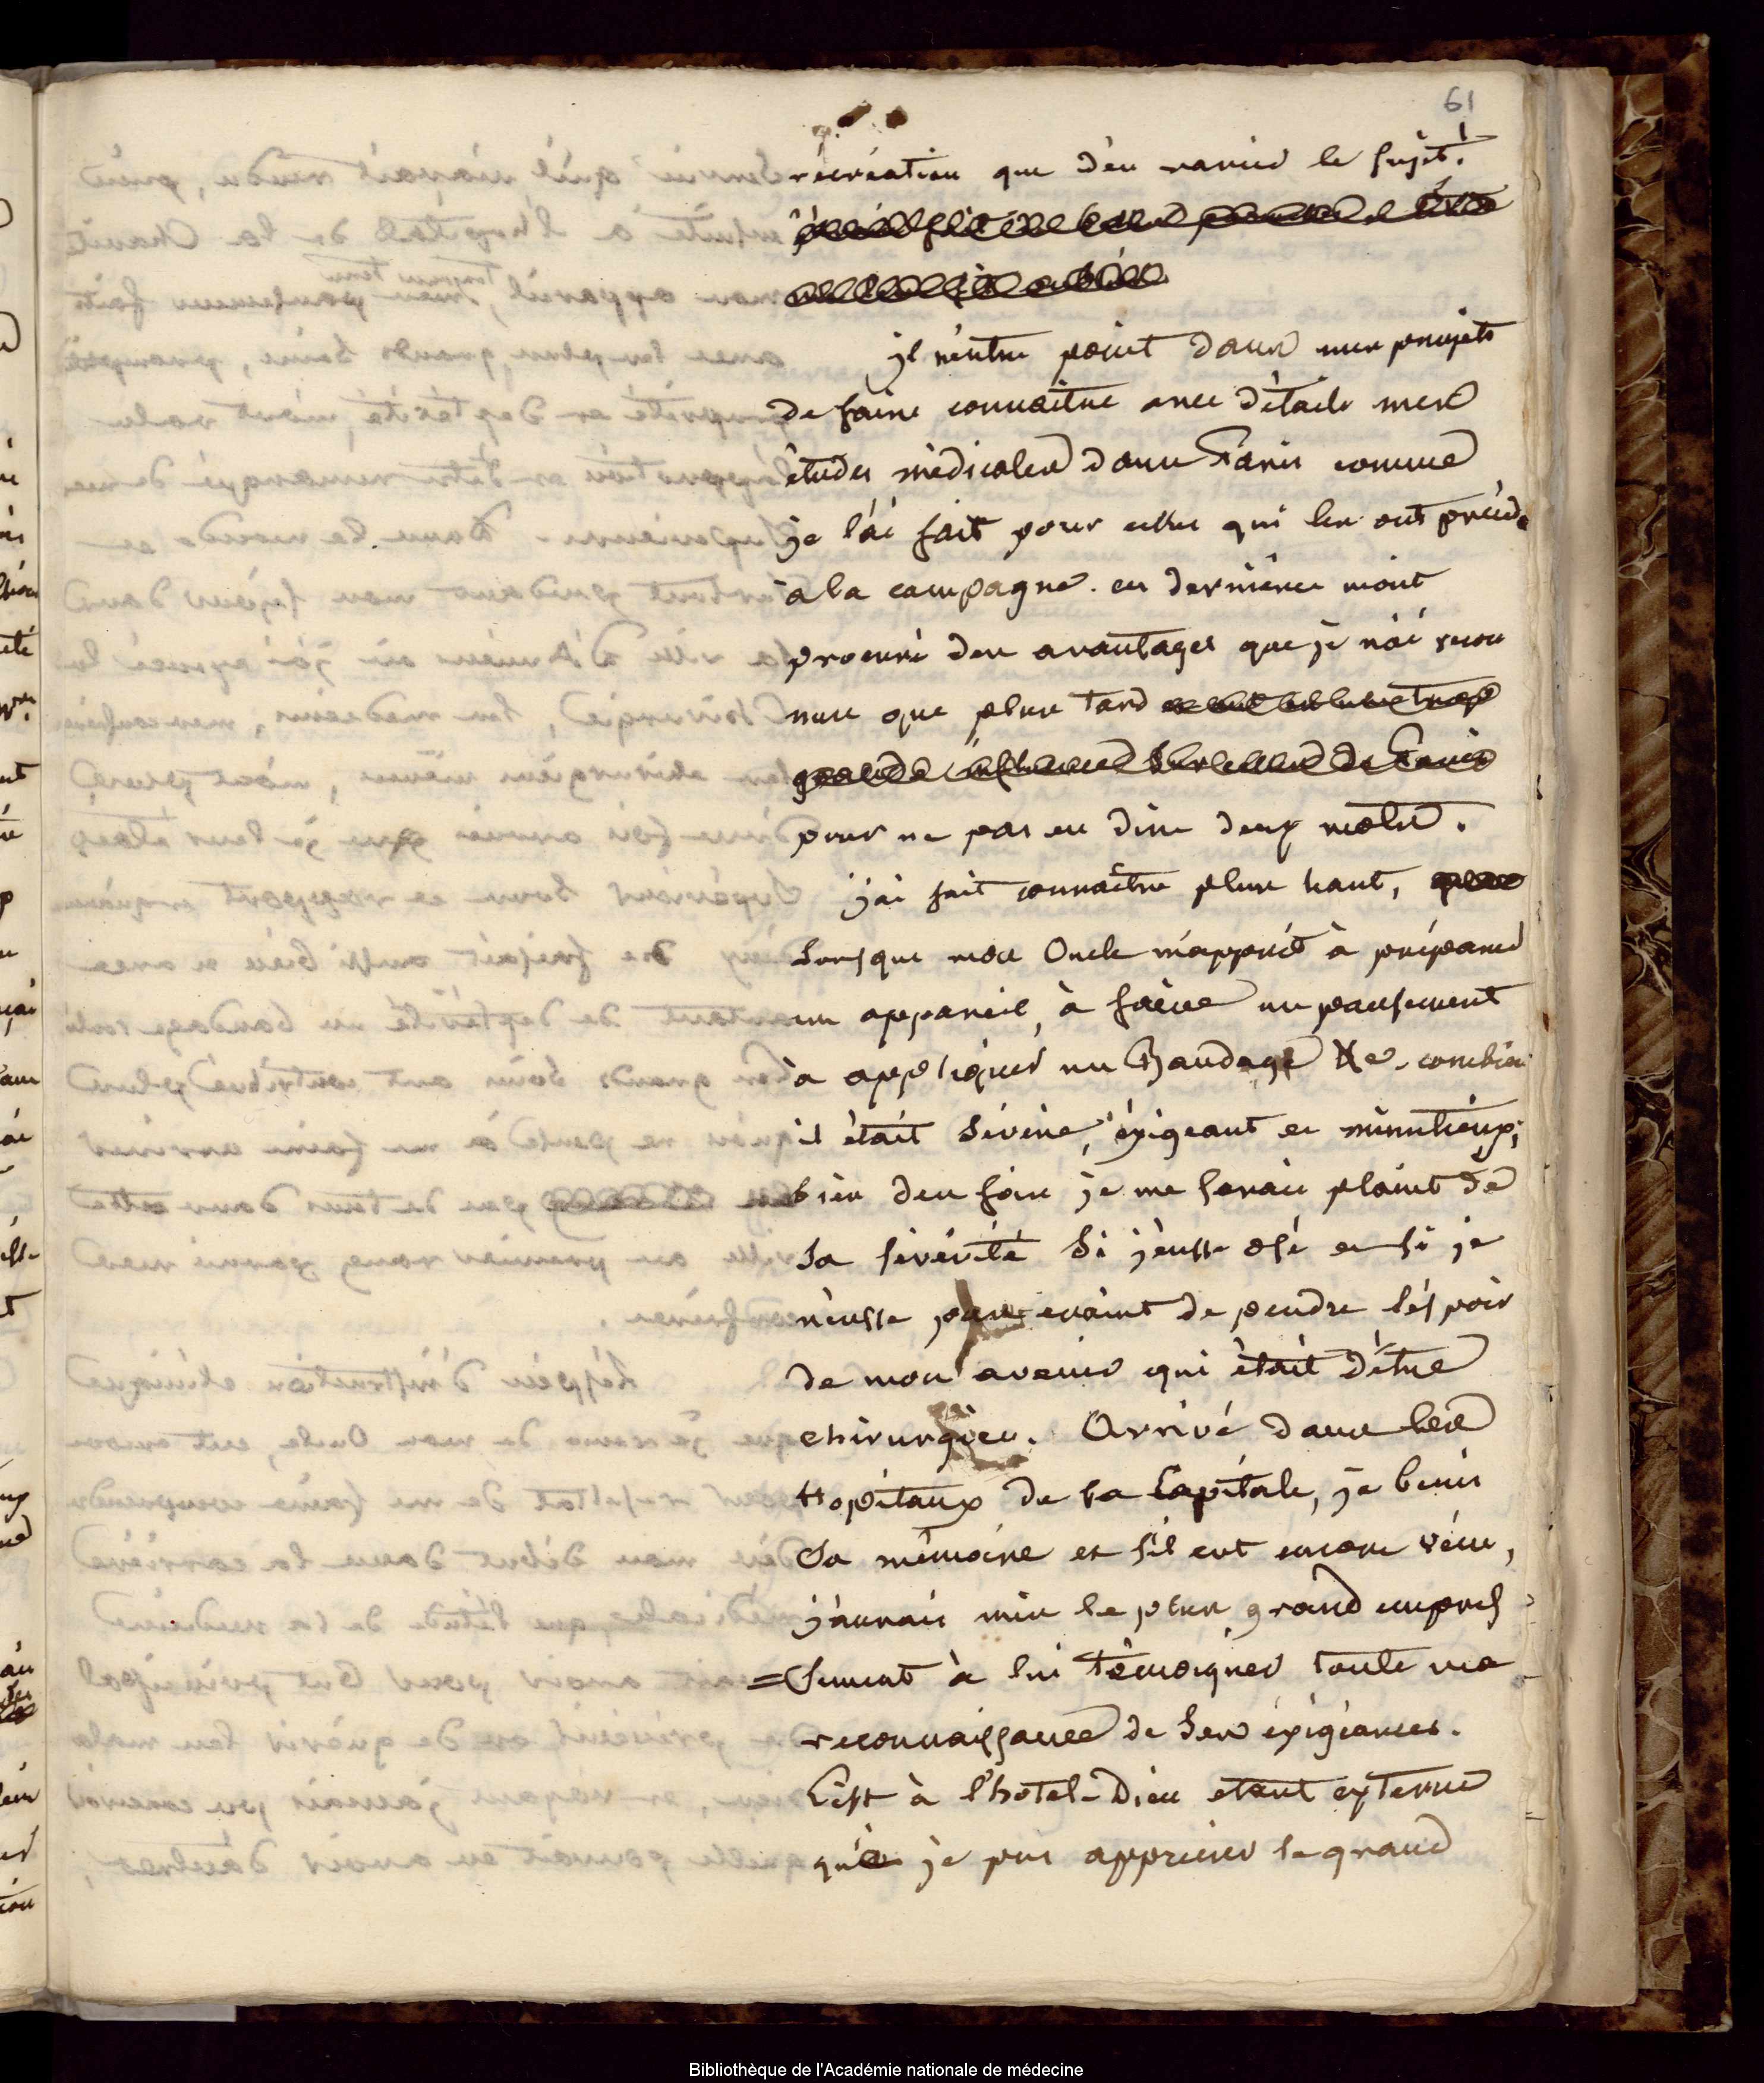 61
récréation que d'en varier le sujet.
il n'entre point dans mes projets
de faire connaitre avec détails mes
études médicales dans Paris comme
je l'ai fait pour celles qui les ont précédé
à la campagne. ces dernières m'ont
procuré des avantages que je n'ai recon
nus que plus tard
grande influence sur celles de Paris
pour ne pas en dire deux mots.
j'ai fait connaitre plus haut,
lorsque mon Oncle m'apprit à préparer
un appareil, à faire un pansement
à appliquer un Bandage &c. combien
il était sévère, éxigeant et minutieux;
bien des fois je me serais plaint de
sa sévérité si j'eusse osé et si je
n'eusse pas craint de perdre l'éspoir
de mon avenir qui était d'être
chirurgien. Arrivé dans les
Hopitaux de la Capitale, je benis
sa mémoire et s'il eut encore vécu,
j'aurais mis le plus grand empres
=sement à lui témoigner toute ma
reconnaissance de ses éxigéances.
C'est à l'hotel-Dieu etant externe
que je pus apprécier le grand
Bibliothèque de l'Académie nationale de médecine